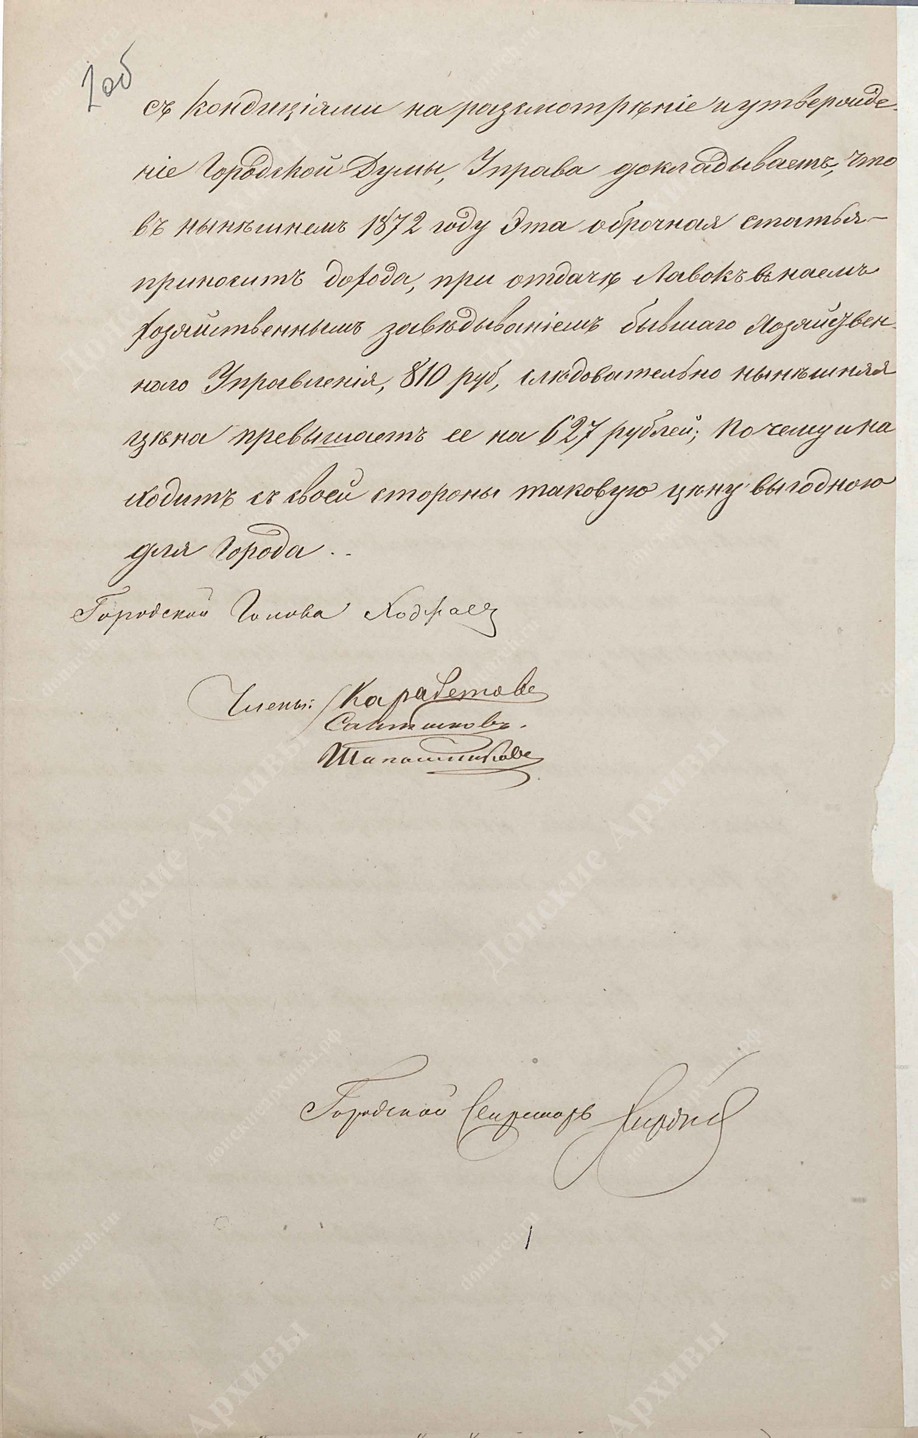 2об
съ кондиціями на разсмотрѣніе и утвержде-
ніе Городской Думы, Управа докладываетъ, что
въ нынѣшнемъ 1872 году Эта оброчная статья
приноситъ дохода, при отдачѣ Лавокъ въ наемъ
хозяйственнымъ завѣдываніемъ бывшаго Хозяйствен-
наго Управленія, 810 руб, слѣдовательно нынѣшняя
цѣна превышаетъ ее на 627 рублей; Почему и на
ходитъ съ своей стороны таковую цѣну выгодною
для Города ..
Городской Голова
Члены:
Городской Секретарь